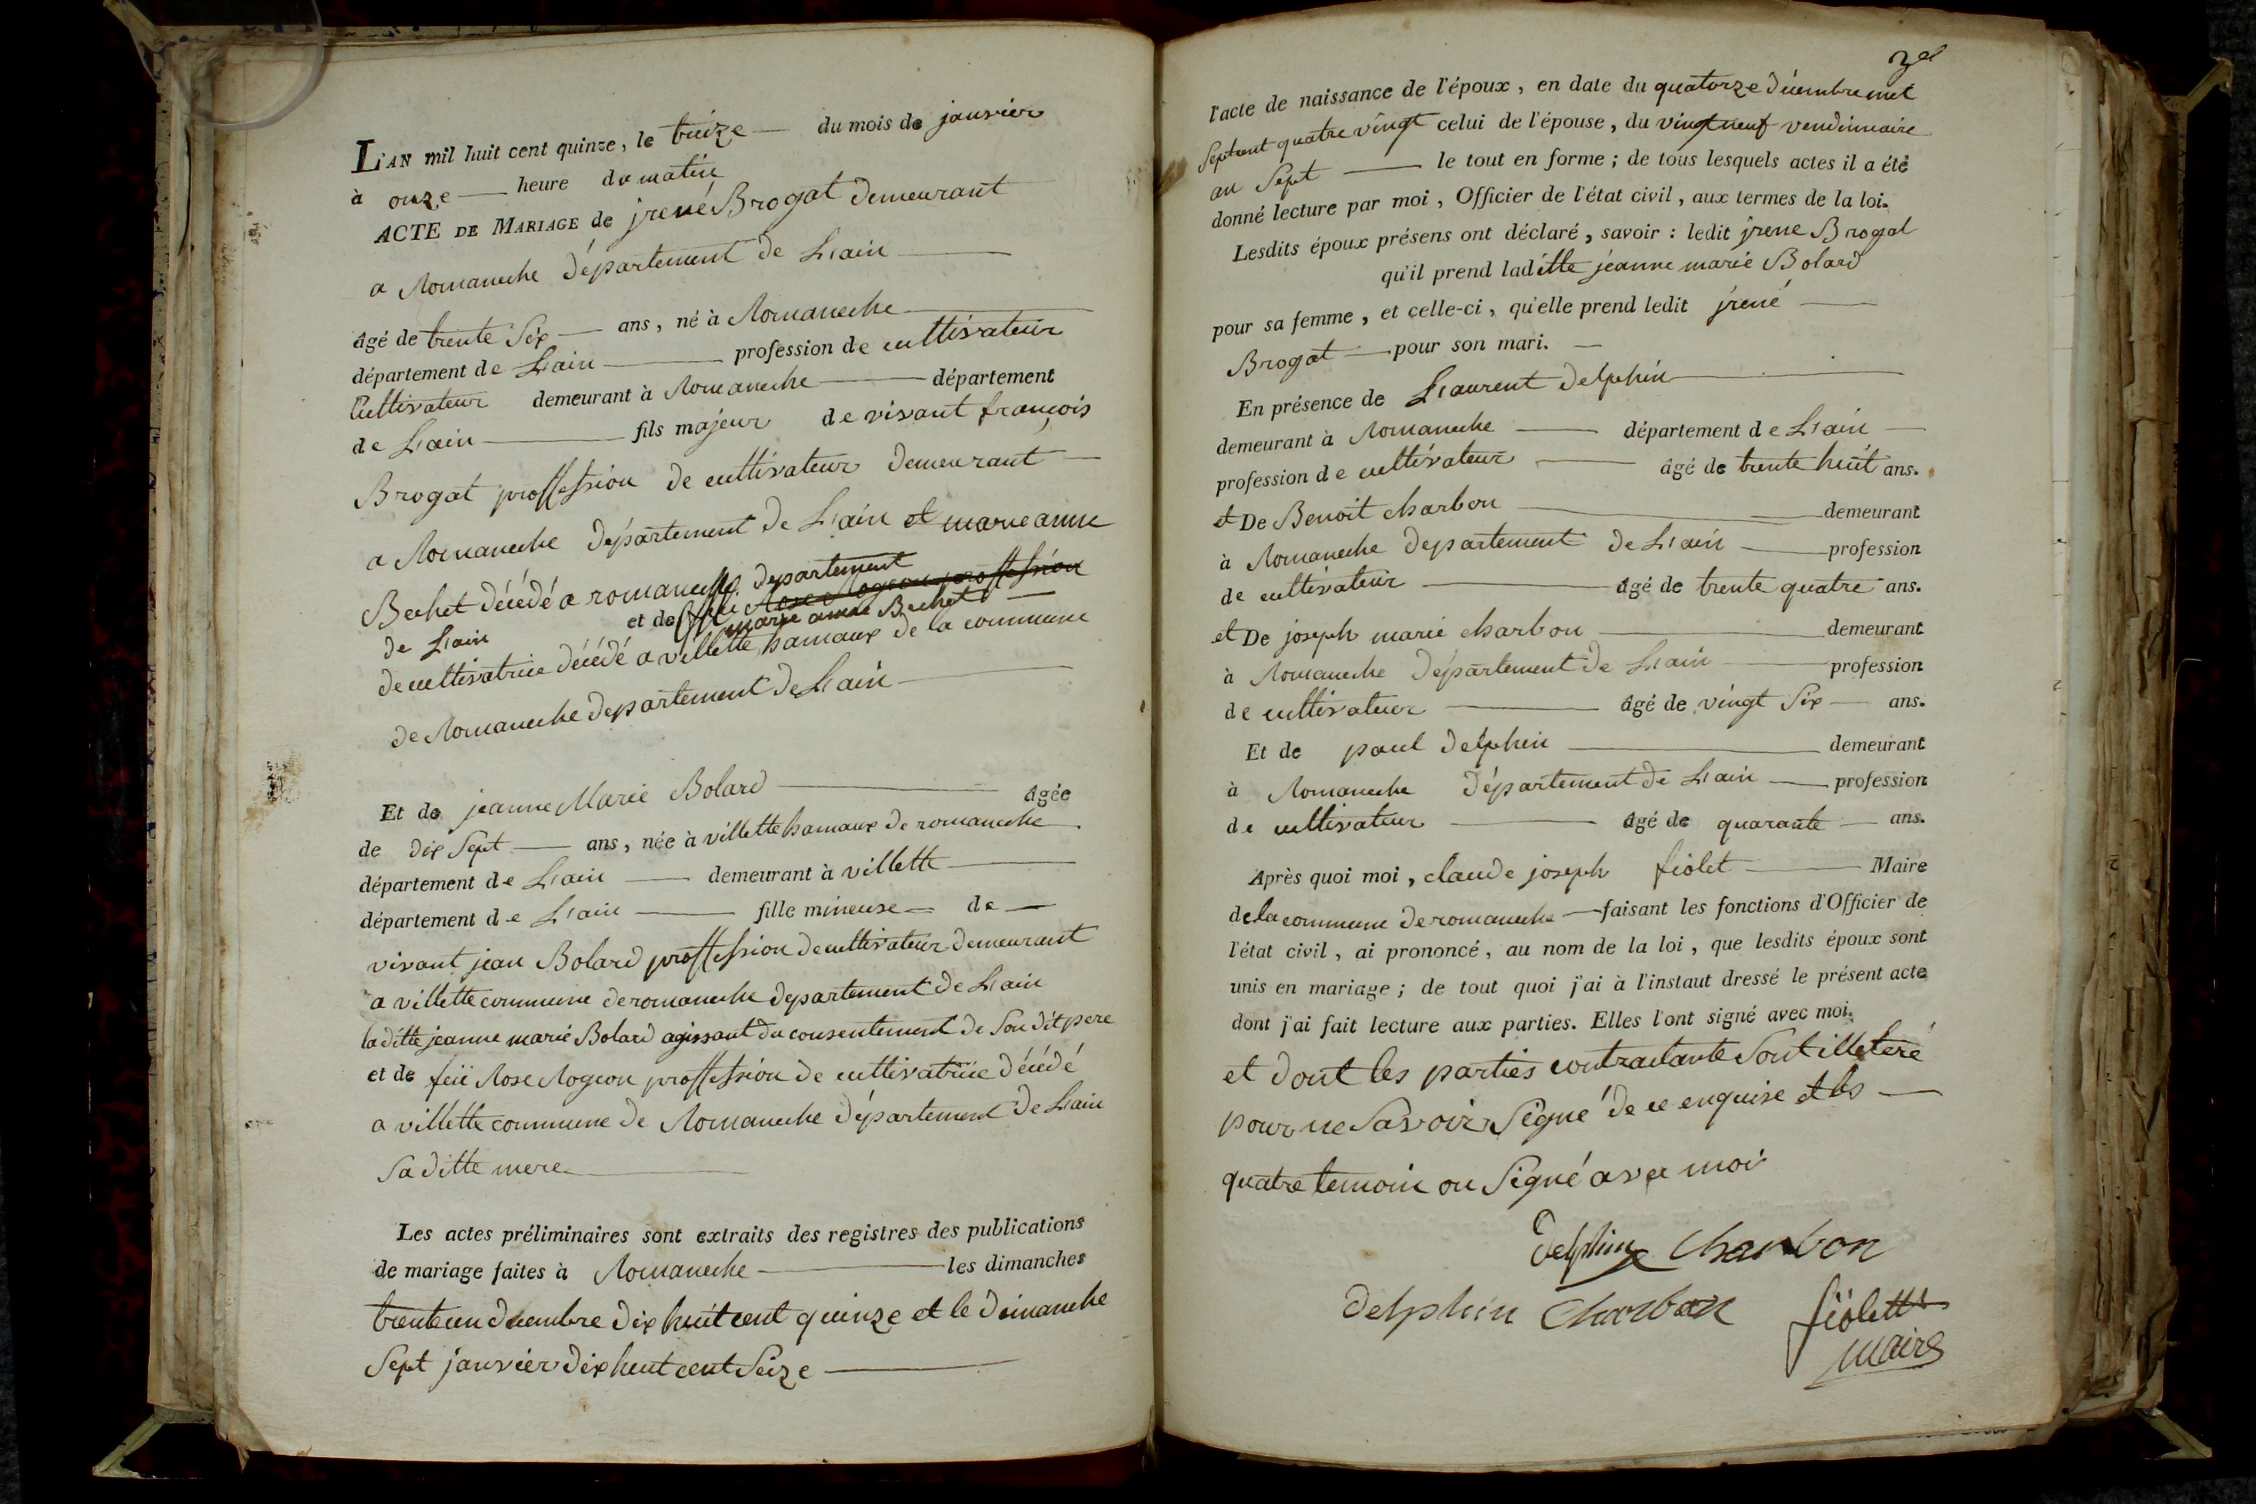 L'AN mil huit cent quinze, le treize du mois de janvier
à onze heure du matin
ACTE DE MARIAGE de jrené Brogat demeurant
a Romaneche département de L'ain
âgé de trente Six ans, né à Romaneche
département de L'ain profession de cultivateur
Cultivateur demeurant à Romaneche département
de L'ain fils majeur de vivant françois
Brogat proffession de cultivateur demeurant
a Romaneche département de L'ain et marie anne
Bechet décédé a romaneche departement
de L'ain et de feüe Rose Rogeon proffession
marie anne Bechet
de cultivatrice décédé a villette hamaux de la commune
de Romaneche departement de L'ain
Et de jeanne Marie Bolard âgée
de dix Sept ans, née à villette hamaux de romaneche
département de L'ain demeurant à villette
département de L'ain fille mineuse de
vivant jean Bolard proffession de cultivateur demeurant
a villette commune de romaneche departement de L'ain
la ditte jeanne marie Bolard agissant du consentement de Son dit pere
et de feüe Rose Rogeon proffession de cultivatrice décédé
a villette commune de Romaneche département de L'ain
Sa ditte mere
Les actes préliminaires sont extraits des registres des publications
de mariage faites à Romaneche les dimanches
trente un decembre dix huit cent quinze et le dimanche
Sept janvier dix huit cent Seize
l'acte de naissance de l'époux, en date du quatorze décembre mil
Sept cent quatre vingt celui de l'épouse, du vingt neuf vendimiaire
an Sept le tout en forme; de tous lesquels actes il a été
donné lecture par moi, Officier de l'état civil, aux termes de la loi.
Lesdits époux présens ont déclaré, savoir : ledit jrene Brogat
qu'il prend laditte jeanne marie Bolard
pour sa femme, et celle-ci, qu'elle prend ledit jrené
Brogat pour son mari.
En présence de Laurent delphin
demeurant à Romaneche département de L'ain
profession de cultivateur âgé de trente huit ans.
et De Benoit charbon demeurant
à Romaneche departement de L'ain profession
de cultivateur âgé de trente quatre ans.
et De joseph marie charbon demeurant
à Romaneche département de L'ain profession
de cultivateur âgé de vingt Six ans.
Et de paul delphin demeurant
à Romaneche département de L'ain profession
de cultivateur âgé de quarante ans.
Après quoi moi, claude joseph fiolet Maire
de la commune de romaneche faisant les fonctions d'Officier de
l'état civil, ai prononcé, au nom de la loi, que lesdits époux sont
unis en mariage; de tout quoi j'ai à l'instaut dressé le présent acte
dont j'ai fait lecture aux parties. Elles l'ont signé avec moi.
et dont les parties contractante Sont illeteré
pour ne Savoir Signé de ce enquise et les
quatre temoin on Signé avec moi
delphin Charbon
delphin Charbon fiolett
maire